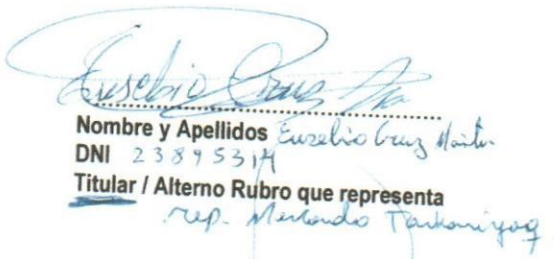 Eusebio Cruz
Nombre y Apellidos Eusebio Cruz
DNI 2389531
Titular / Alterno Rubro que representa
rep. Mercado